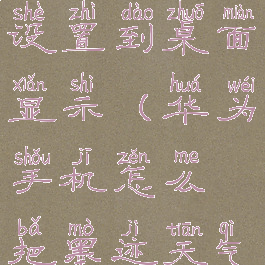 shè zhì dào zhuō miàn
设置到桌面
xiǎn shì huá wéi
显示（华为
shǒu jī zěn me
手机怎么
bǎ mò jì tiān qì
把墨迹天气